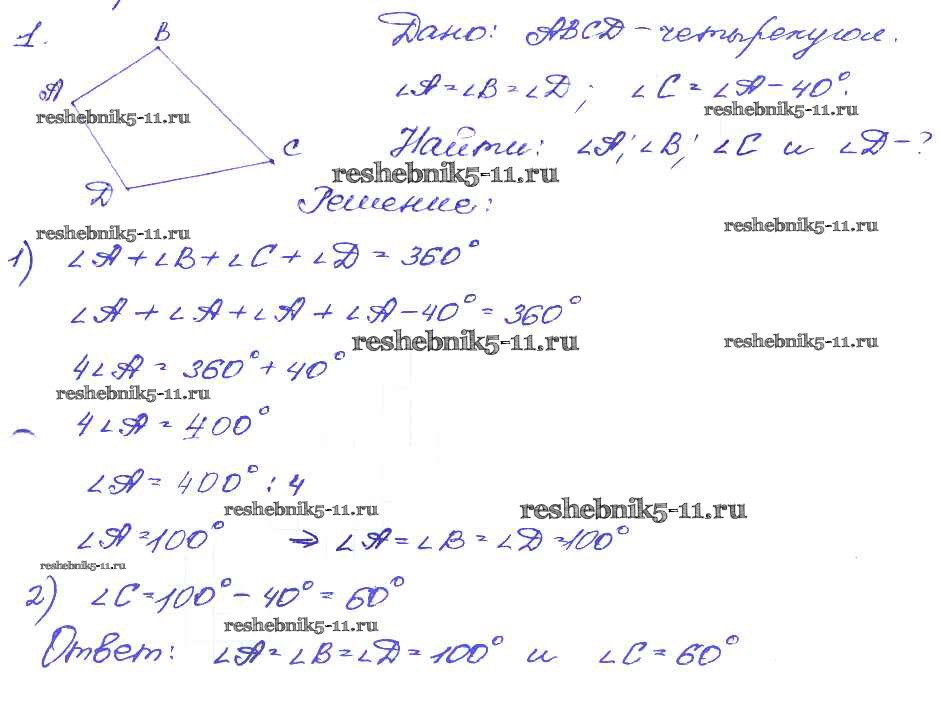 1.
B
A
C
D
Дано: ABCD – четырехугол.
∠A = ∠B = ∠D; ∠C = ∠A – 40°.
reshebnik5-11.ru
reshebnik5-11.ru
Найти: ∠A; ∠B; ∠C и ∠D – ?
reshebnik5-11.ru
Решение:
reshebnik5-11.ru
reshebnik5-11.ru
1) ∠A + ∠B + ∠C + ∠D = 360°
∠A + ∠A + ∠A + ∠A – 40° = 360°
reshebnik5-11.ru
reshebnik5-11.ru
4∠A = 360° + 40°
reshebnik5-11.ru
4∠A = 400°
∠A = 400° : 4
reshebnik5-11.ru
reshebnik5-11.ru
∠A = 100° ⇒ ∠A = ∠B = ∠D = 100°
reshebnik5-11.ru
2) ∠C = 100° – 40° = 60°
reshebnik5-11.ru
Ответ: ∠A = ∠B = ∠D = 100° и ∠C = 60°